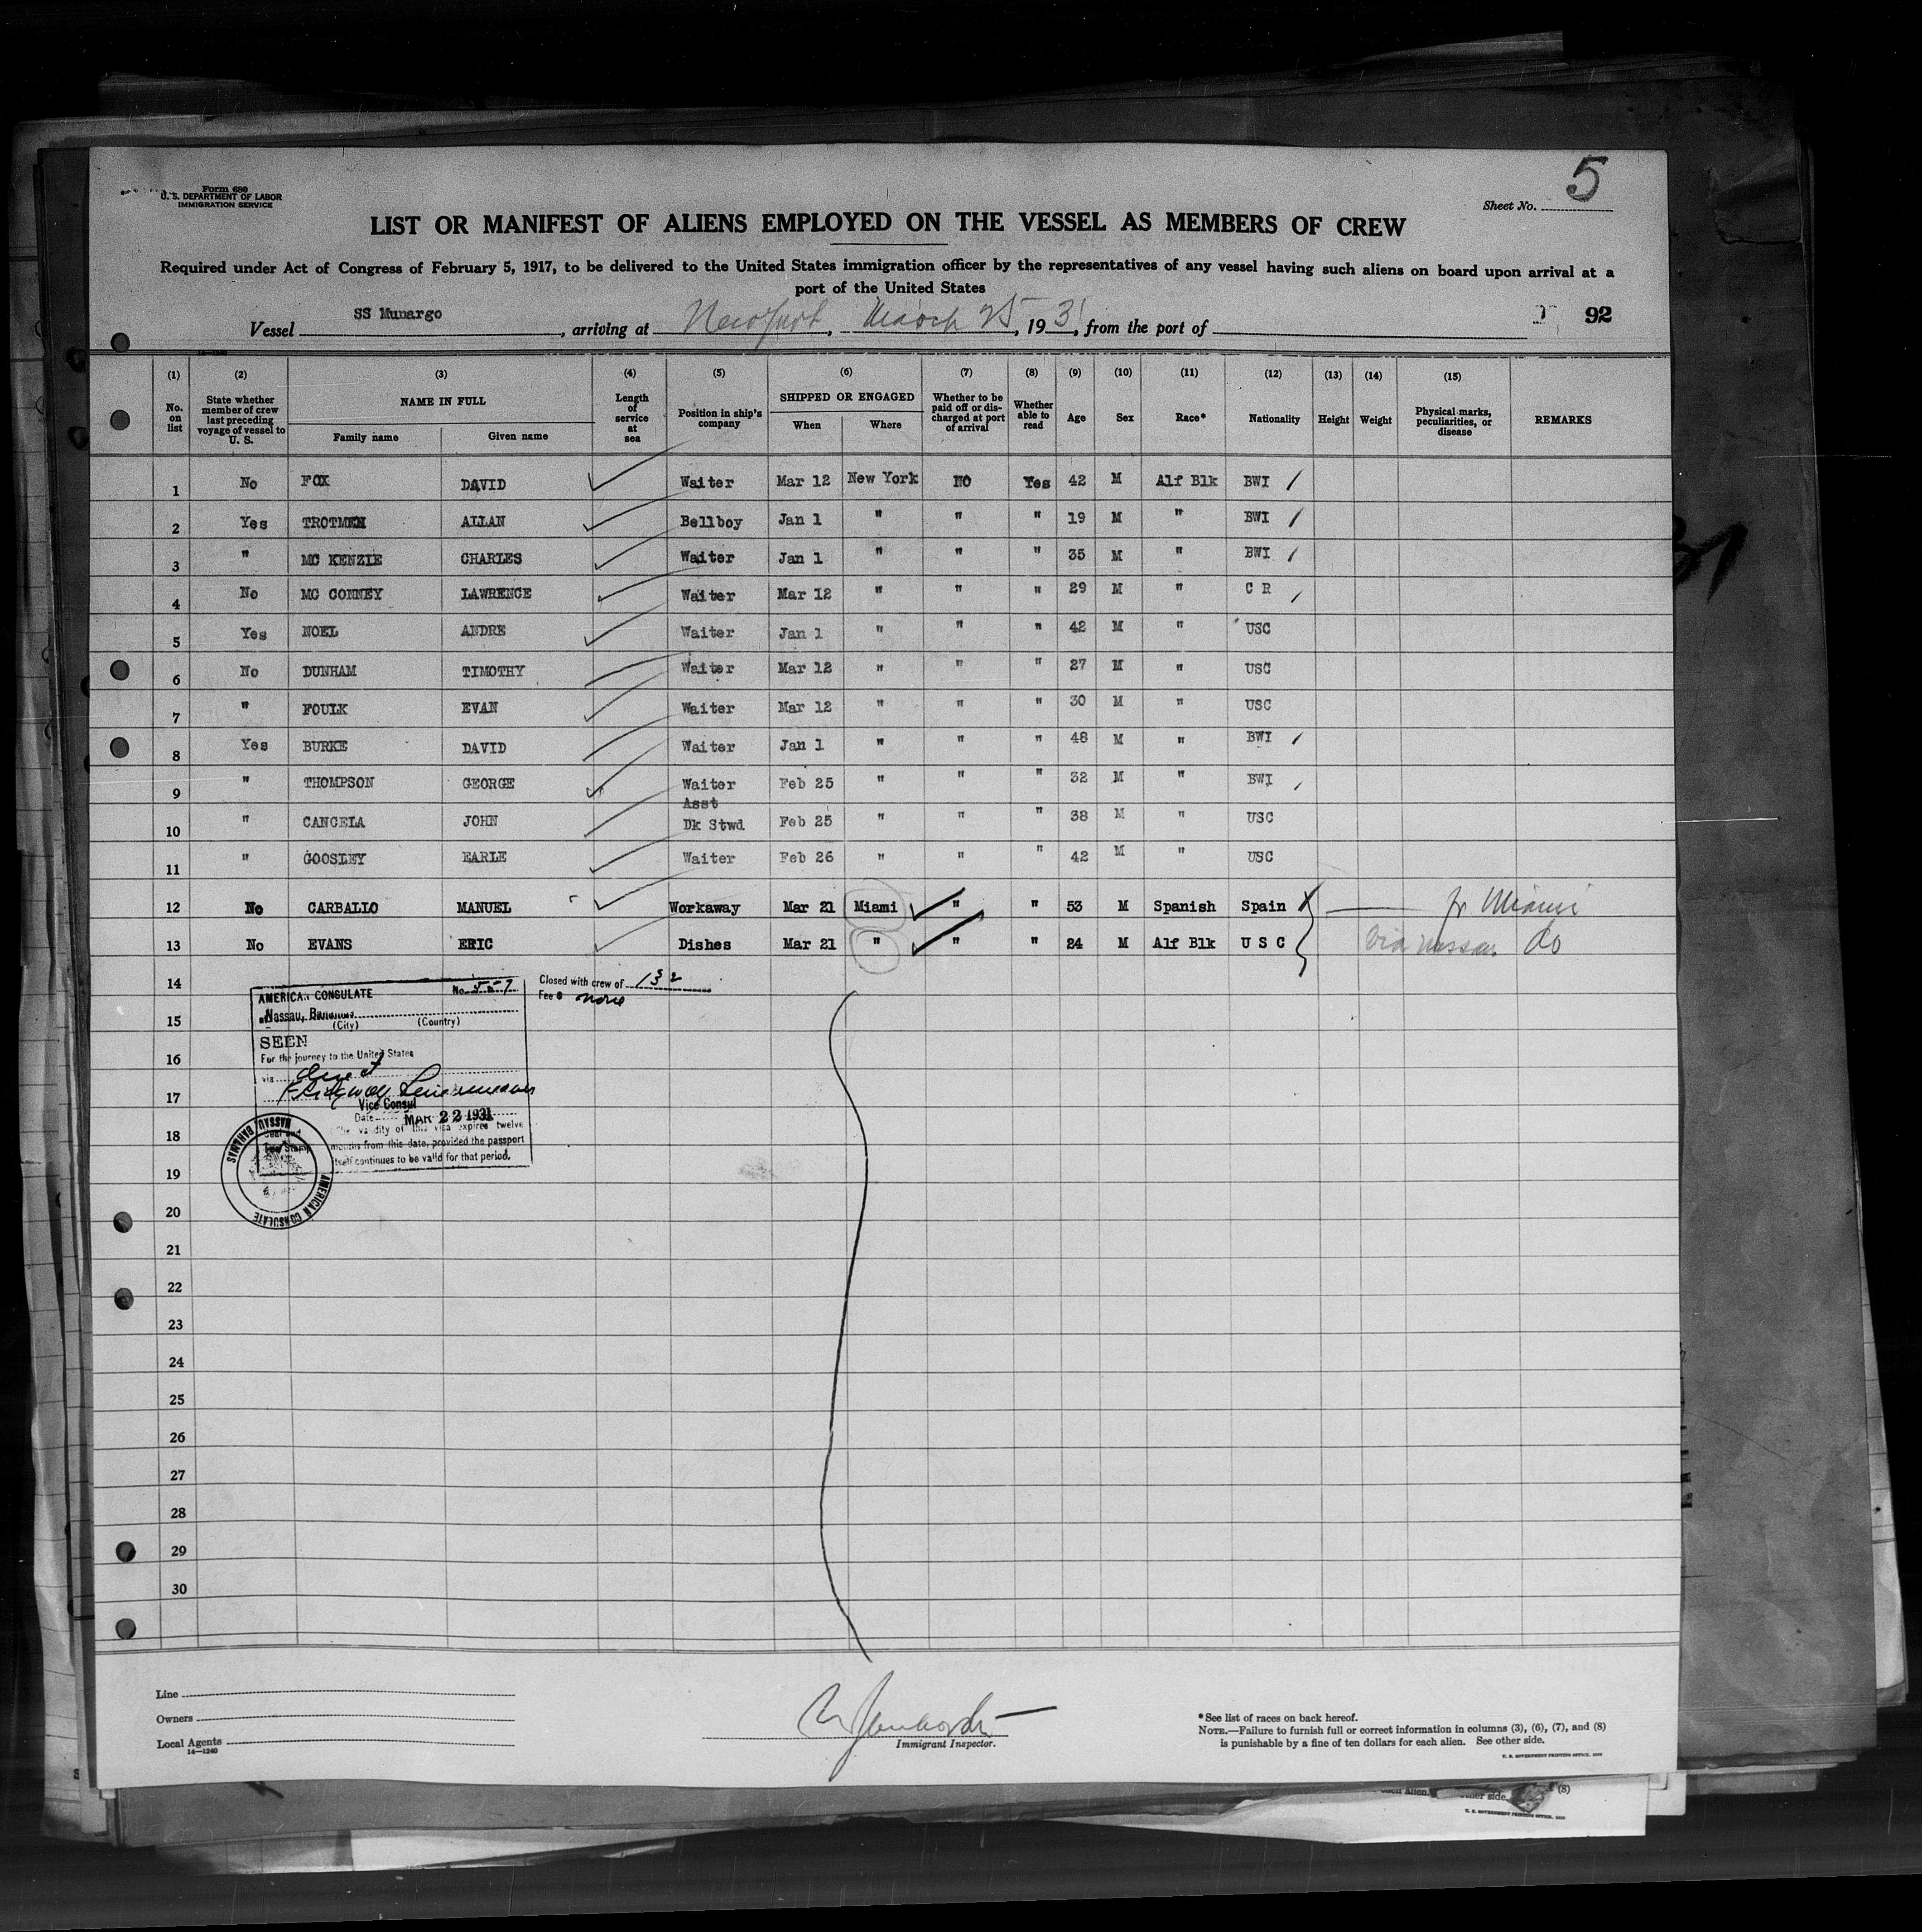 5
Form 680
U. S. DEPARTMENT OF LABOR
IMMIGRATION SERVICE
Sheet No.
LIST OR MANIFEST OF ALIENS EMPLOYED ON THE VESSEL AS MEMBERS OF CREW
Required under Act of Congress of February 5, 1917, to be delivered to the United States immigration officer by the representatives of any vessel having such aliens on board upon arrival at a
port of the United States
Vessel SS Munargo, arriving at New York, March 25, 1931, from the port of 92
(1) (2) (3) (4) (5) (6) (7) (8) (9) (10) (11) (12) (13) (14) (15)
No. on list State whether member of crew last preceding voyage of vessel to U. S. NAME IN FULL Family name Given name Length of service at sea Position in ship's company SHIPPED OR ENGAGED When Where Whether to be paid off or discharged at port of arrival Whether able to read Age Sex Race* Nationality Height Weight Physical marks, peculiarities, or disease REMARKS
1 No FOX DAVID Waiter Mar 12 New York NO Yes 42 M Alf Blk BWI
2 Yes TROTMEN ALLAN Bellboy Jan 1 " " " 19 M " BWI
3 " MC KENZIE CHARLES Waiter Jan 1 " " " 35 M " BWI
4 No MC CONNEY LAWRENCE Waiter Mar 12 " " " 29 M " C R
5 Yes NOEL ANDRE Waiter Jan 1 " " " 42 M " USC
6 No DUNHAM TIMOTHY Waiter Mar 12 " " " 27 M " USC
7 " FOULK EVAN Waiter Mar 12 " " " 30 M " USC
8 Yes BURKE DAVID Waiter Jan 1 " " " 48 M " BWI
9 " THOMPSON GEORGE Waiter Feb 25 " " " 32 M " BWI
10 " CANGELA JOHN Asst Dk Stwd Feb 25 " " " 38 M " USC
11 " GOOSLEY EARLE Waiter Feb 26 " " " 42 M " USC
12 No CARBALLO MANUEL Workaway Mar 21 Miami " " 53 M Spanish Spain fr Miami
13 No EVANS ERIC Dishes Mar 21 " " " 24 M Alf Blk U S C via Nassau. do
14
15
16
17
18
19
20
21
22
23
24
25
26
27
28
29
30
AMERICAN CONSULATE No. 557
Nassau, Bahamas
(City) (Country)
SEEN
For the journey to the United States
via direct
Vice Consul
Date MAR 22 1931
The validity of this visa expires twelve
months from this date, provided the passport
itself continues to be valid for that period.
Closed with crew of 132
Fee $ none
NASSAU, BAHAMAS
AMERICAN CONSULATE
Line
Owners
Local Agents
14—1240
Immigrant Inspector.
*See list of races on back hereof.
NOTE.—Failure to furnish full or correct information in columns (3), (6), (7), and (8)
is punishable by a fine of ten dollars for each alien. See other side.
U. S. GOVERNMENT PRINTING OFFICE